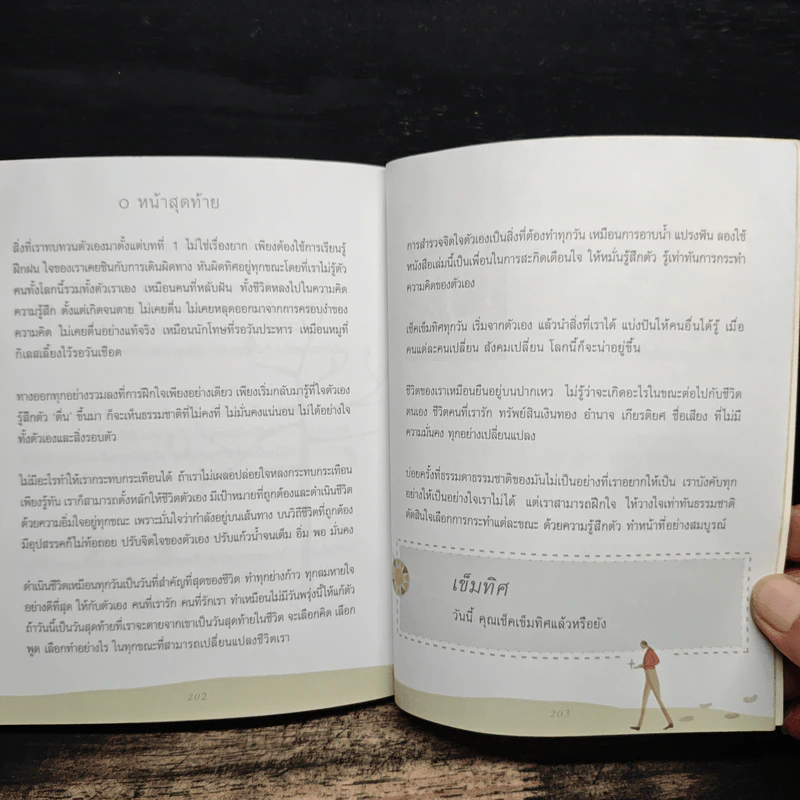 หน้าสุดท้าย
สิ่งที่เราทบทวนตัวเองมาตั้งแต่บทที่ 1 ไม่ใช่เรื่องยาก เพียงต้องใช้การเรียนรู้
ฝึกฝน ใจของเราเคยชินกับการเดินผิดทาง หันผิดทิศอยู่ทุกขณะโดยที่เราไม่รู้ตัว
คนทั้งโลกนี้รวมทั้งตัวเราเอง เหมือนคนที่หลับฝัน ทั้งชีวิตหลงไปในความคิด
ความรู้สึก ตั้งแต่เกิดจนตาย ไม่เคยตื่น ไม่เคยหลุดออกมาจากการครอบงำของ
ความคิด ไม่เคยตื่นอย่างแท้จริง เหมือนนักโทษที่รอวันประหาร เหมือนหมูที่
กิเลสเลี้ยงไว้รอวันเชือด
ทางออกทุกอย่างรวมลงที่การฝึกใจเพียงอย่างเดียว เพียงเริ่มกลับมารู้ที่ใจตัวเอง
รู้สึกตัว 'ตื่น' ขึ้นมา ก็จะเห็นธรรมชาติที่ไม่คงที่ ไม่มั่นคงแน่นอน ไม่ได้อย่างใจ
ทั้งตัวเองและสิ่งรอบตัว
ไม่มีอะไรทำให้เรากระทบกระเทือนได้ ถ้าเราไม่เผลอปล่อยใจหลงกระทบกระเทือน
เพียงรู้ทัน เราก็สามารถตั้งหลักให้ชีวิตตัวเอง มีเป้าหมายที่ถูกต้องและดำเนินชีวิต
ด้วยความอิ่มใจอยู่ทุกขณะ เพราะมั่นใจว่ากำลังอยู่บนเส้นทาง บนวิถีชีวิตที่ถูกต้อง
มีอุปสรรคก็ไม่ท้อถอย ปรับจิตใจของตัวเอง ปรับแก้วน้ำจนเต็ม อิ่ม พอ มั่นคง
ดำเนินชีวิตเหมือนทุกวันเป็นวันที่สำคัญที่สุดของชีวิต ทำทุกย่างก้าว ทุกลมหายใจ
อย่างดีที่สุด ให้กับตัวเอง คนที่เรารัก คนที่รักเรา ทำเหมือนไม่มีวันพรุ่งนี้ให้แก้ตัว
ถ้าวันนี้เป็นวันสุดท้ายที่เราจะตายจากเขาเป็นวันสุดท้ายในชีวิต จะเลือกคิด เลือก
พูด เลือกทำอย่างไร ในทุกขณะที่สามารถเปลี่ยนแปลงชีวิตเรา
202
การสำรวจจิตใจตัวเองเป็นสิ่งที่ต้องทำทุกวัน เหมือนการอาบน้ำ แปรงฟัน ลองใช้
หนังสือเล่มนี้เป็นเพื่อนในการสะกิดเตือนใจ ให้หมั่นรู้สึกตัว รู้เท่าทันการกระทำ
ความคิดของตัวเอง
เช็คเข็มทิศทุกวัน เริ่มจากตัวเอง แล้วนำสิ่งที่เราได้ แบ่งปันให้คนอื่นได้รู้ เมื่อ
คนแต่ละคนเปลี่ยน สังคมเปลี่ยน โลกนี้ก็จะน่าอยู่ขึ้น
ชีวิตของเราเหมือนยืนอยู่บนปากเหว ไม่รู้ว่าจะเกิดอะไรในขณะต่อไปกับชีวิต
ตนเอง ชีวิตคนที่เรารัก ทรัพย์สินเงินทอง อำนาจ เกียรติยศ ชื่อเสียง ที่ไม่มี
ความมั่นคง ทุกอย่างเปลี่ยนแปลง
บ่อยครั้งที่ธรรมดาธรรมชาติของมันไม่เป็นอย่างที่เราอยากให้เป็น เราบังคับทุก
อย่างให้เป็นอย่างใจเราไม่ได้ แต่เราสามารถฝึกใจ ให้วางใจเท่าทันธรรมชาติ
ตัดสินใจเลือกการกระทำแต่ละขณะ ด้วยความรู้สึกตัว ทำหน้าที่อย่างสมบูรณ์
เข็มทิศ
วันนี้ คุณเช็คเข็มทิศแล้วหรือยัง
203